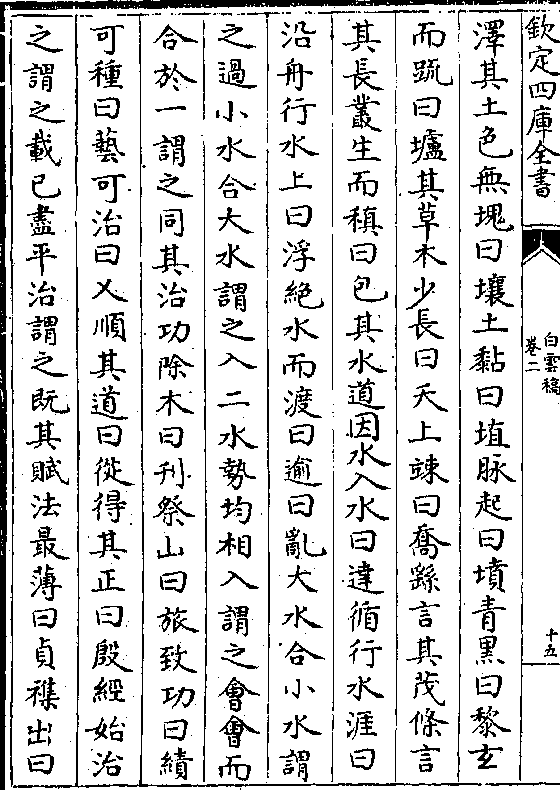 欽定四庫全書
白雲稿
卷二
十五
澤其土色無塊曰壤土黏曰埴脉起曰墳青黑曰黎玄
而疏曰壚其草木少長曰夭上竦曰喬繇言其茂條言
其長叢生而稹曰包其水道因水入水曰達循行水涯曰
沿舟行水上曰浮絶水而渡曰逾曰亂大水合小水謂
之過小水合大水謂之入二水勢均相入謂之會會而
合於一謂之同其治功除木曰刋祭山曰旅致功曰績
可種曰藝可治曰乂順其道曰從得其正曰殷經始治
之謂之載已盡平治謂之既其賦法最薄曰貞襍出曰